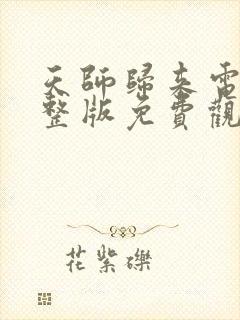 天師歸來電
整版免費觀
花紫礫